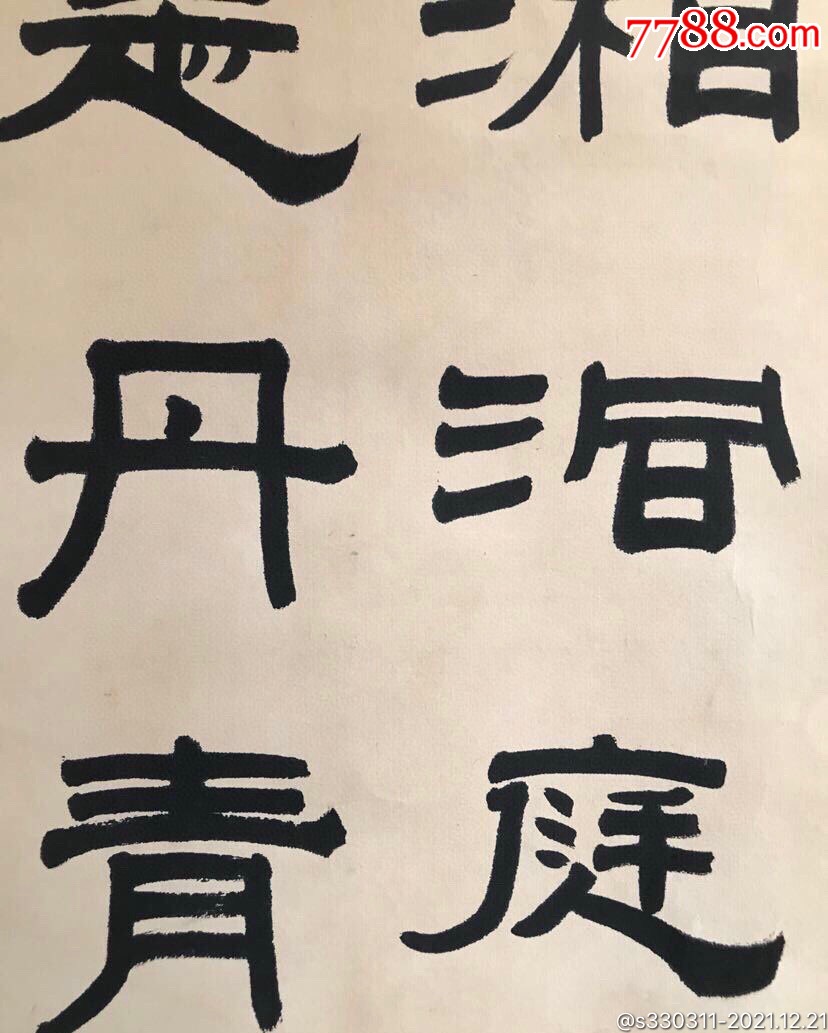 湘洞庭
丹青
7788.com
@s330311-2021.12.21